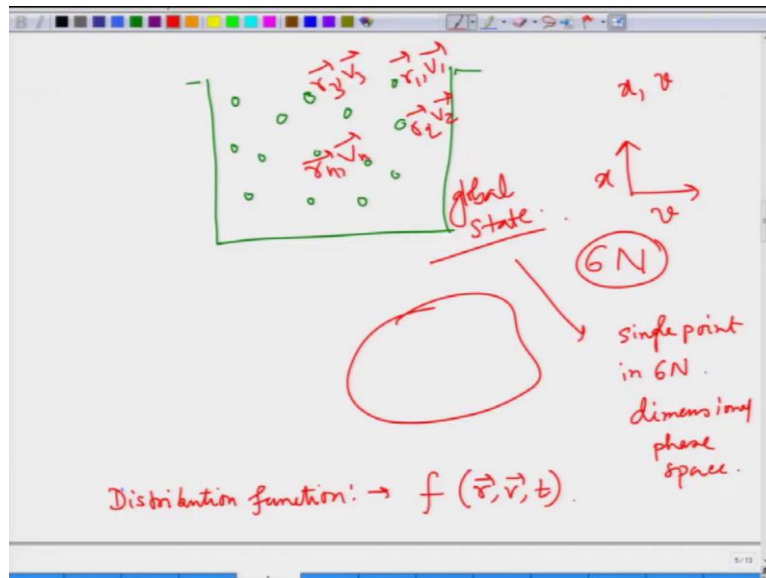 r⃗₃, v⃗₃ r⃗₁, v⃗₁
r⃗₂ v⃗₂
r⃗ₘ, v⃗ₙ
x, v
x
v
global
state.
6N
single point
in 6N.
dimensional
phase
space.
Distribution function: → f (r⃗, v⃗, t).
5/13